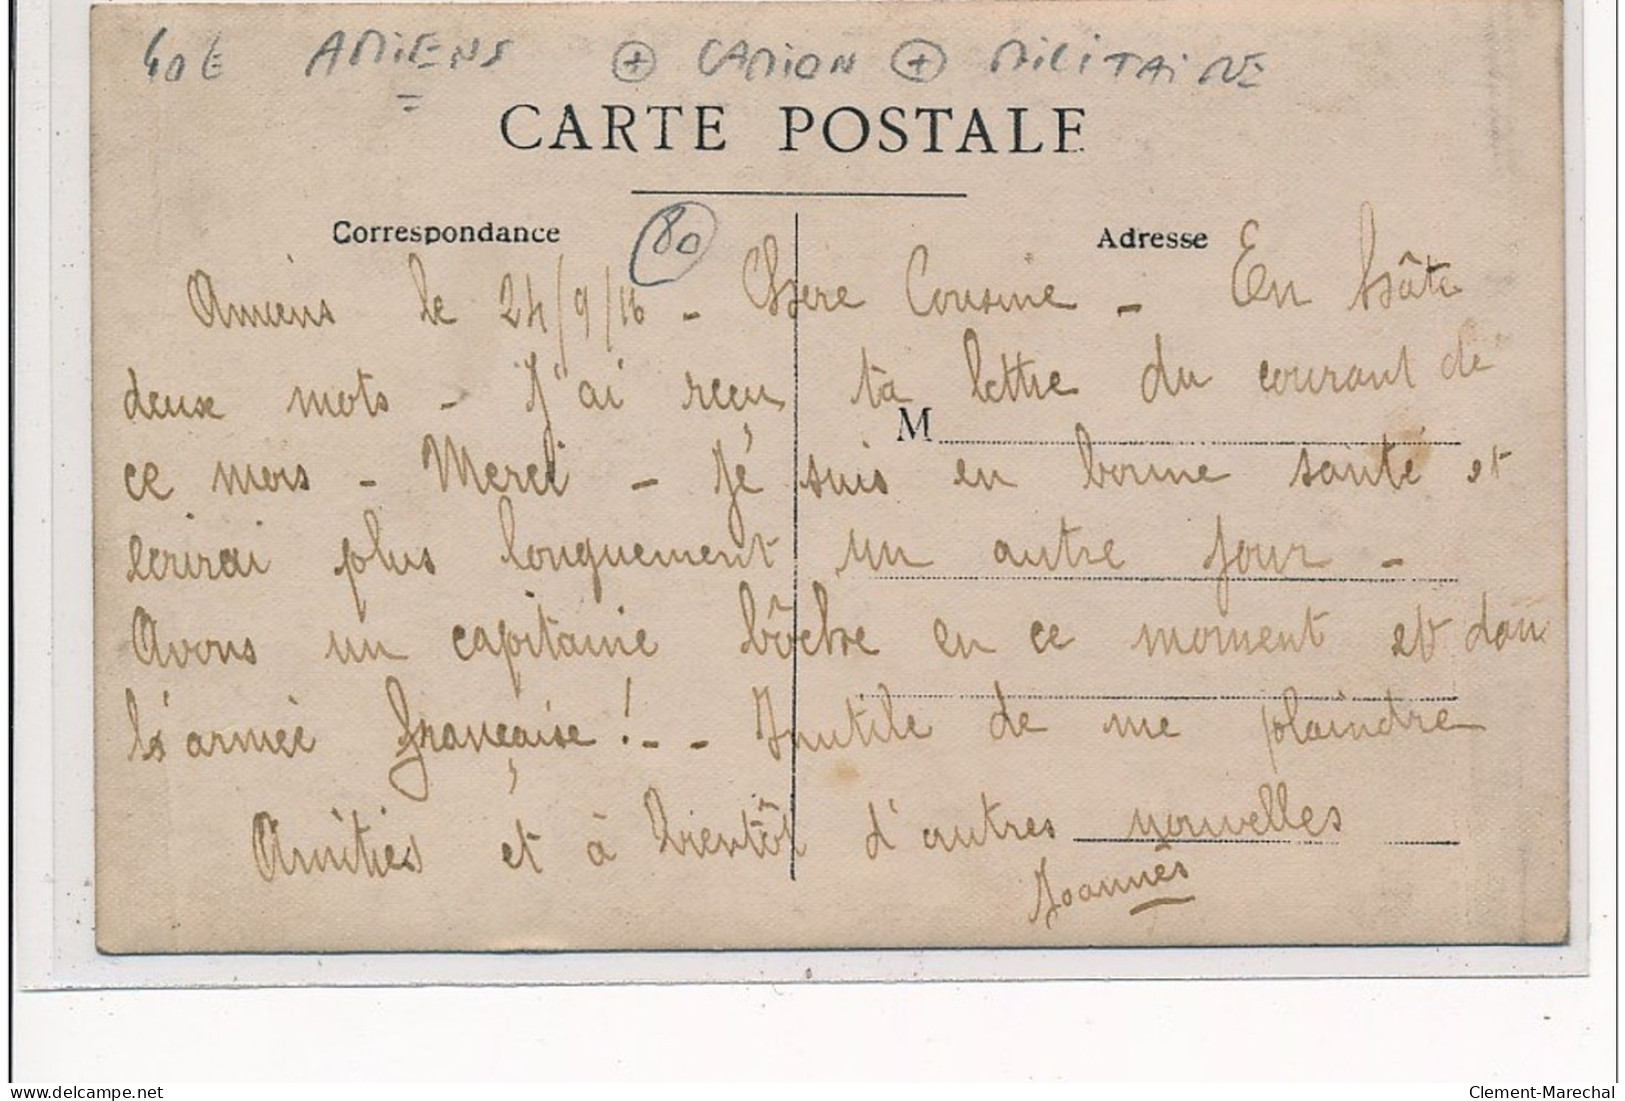 40€ AMIENS + CAMION + MILITAIRE
CARTE POSTALE
Correspondance
80
Adresse
Amiens le 24/9/16 - Chère Cousine - En hâte
deux mots - J'ai reçu ta lettre du courant de
M
ce mois - Merci - Je suis en bonne santé et
écrirai plus longuement un autre jour -
Avons un capitaine bôche en ce moment et dans
l'armée française ! - - Inutile de me plaindre
Amitiés et à bientôt d'autres nouvelles
Joannès
delcampe.net
Clement-Marechal